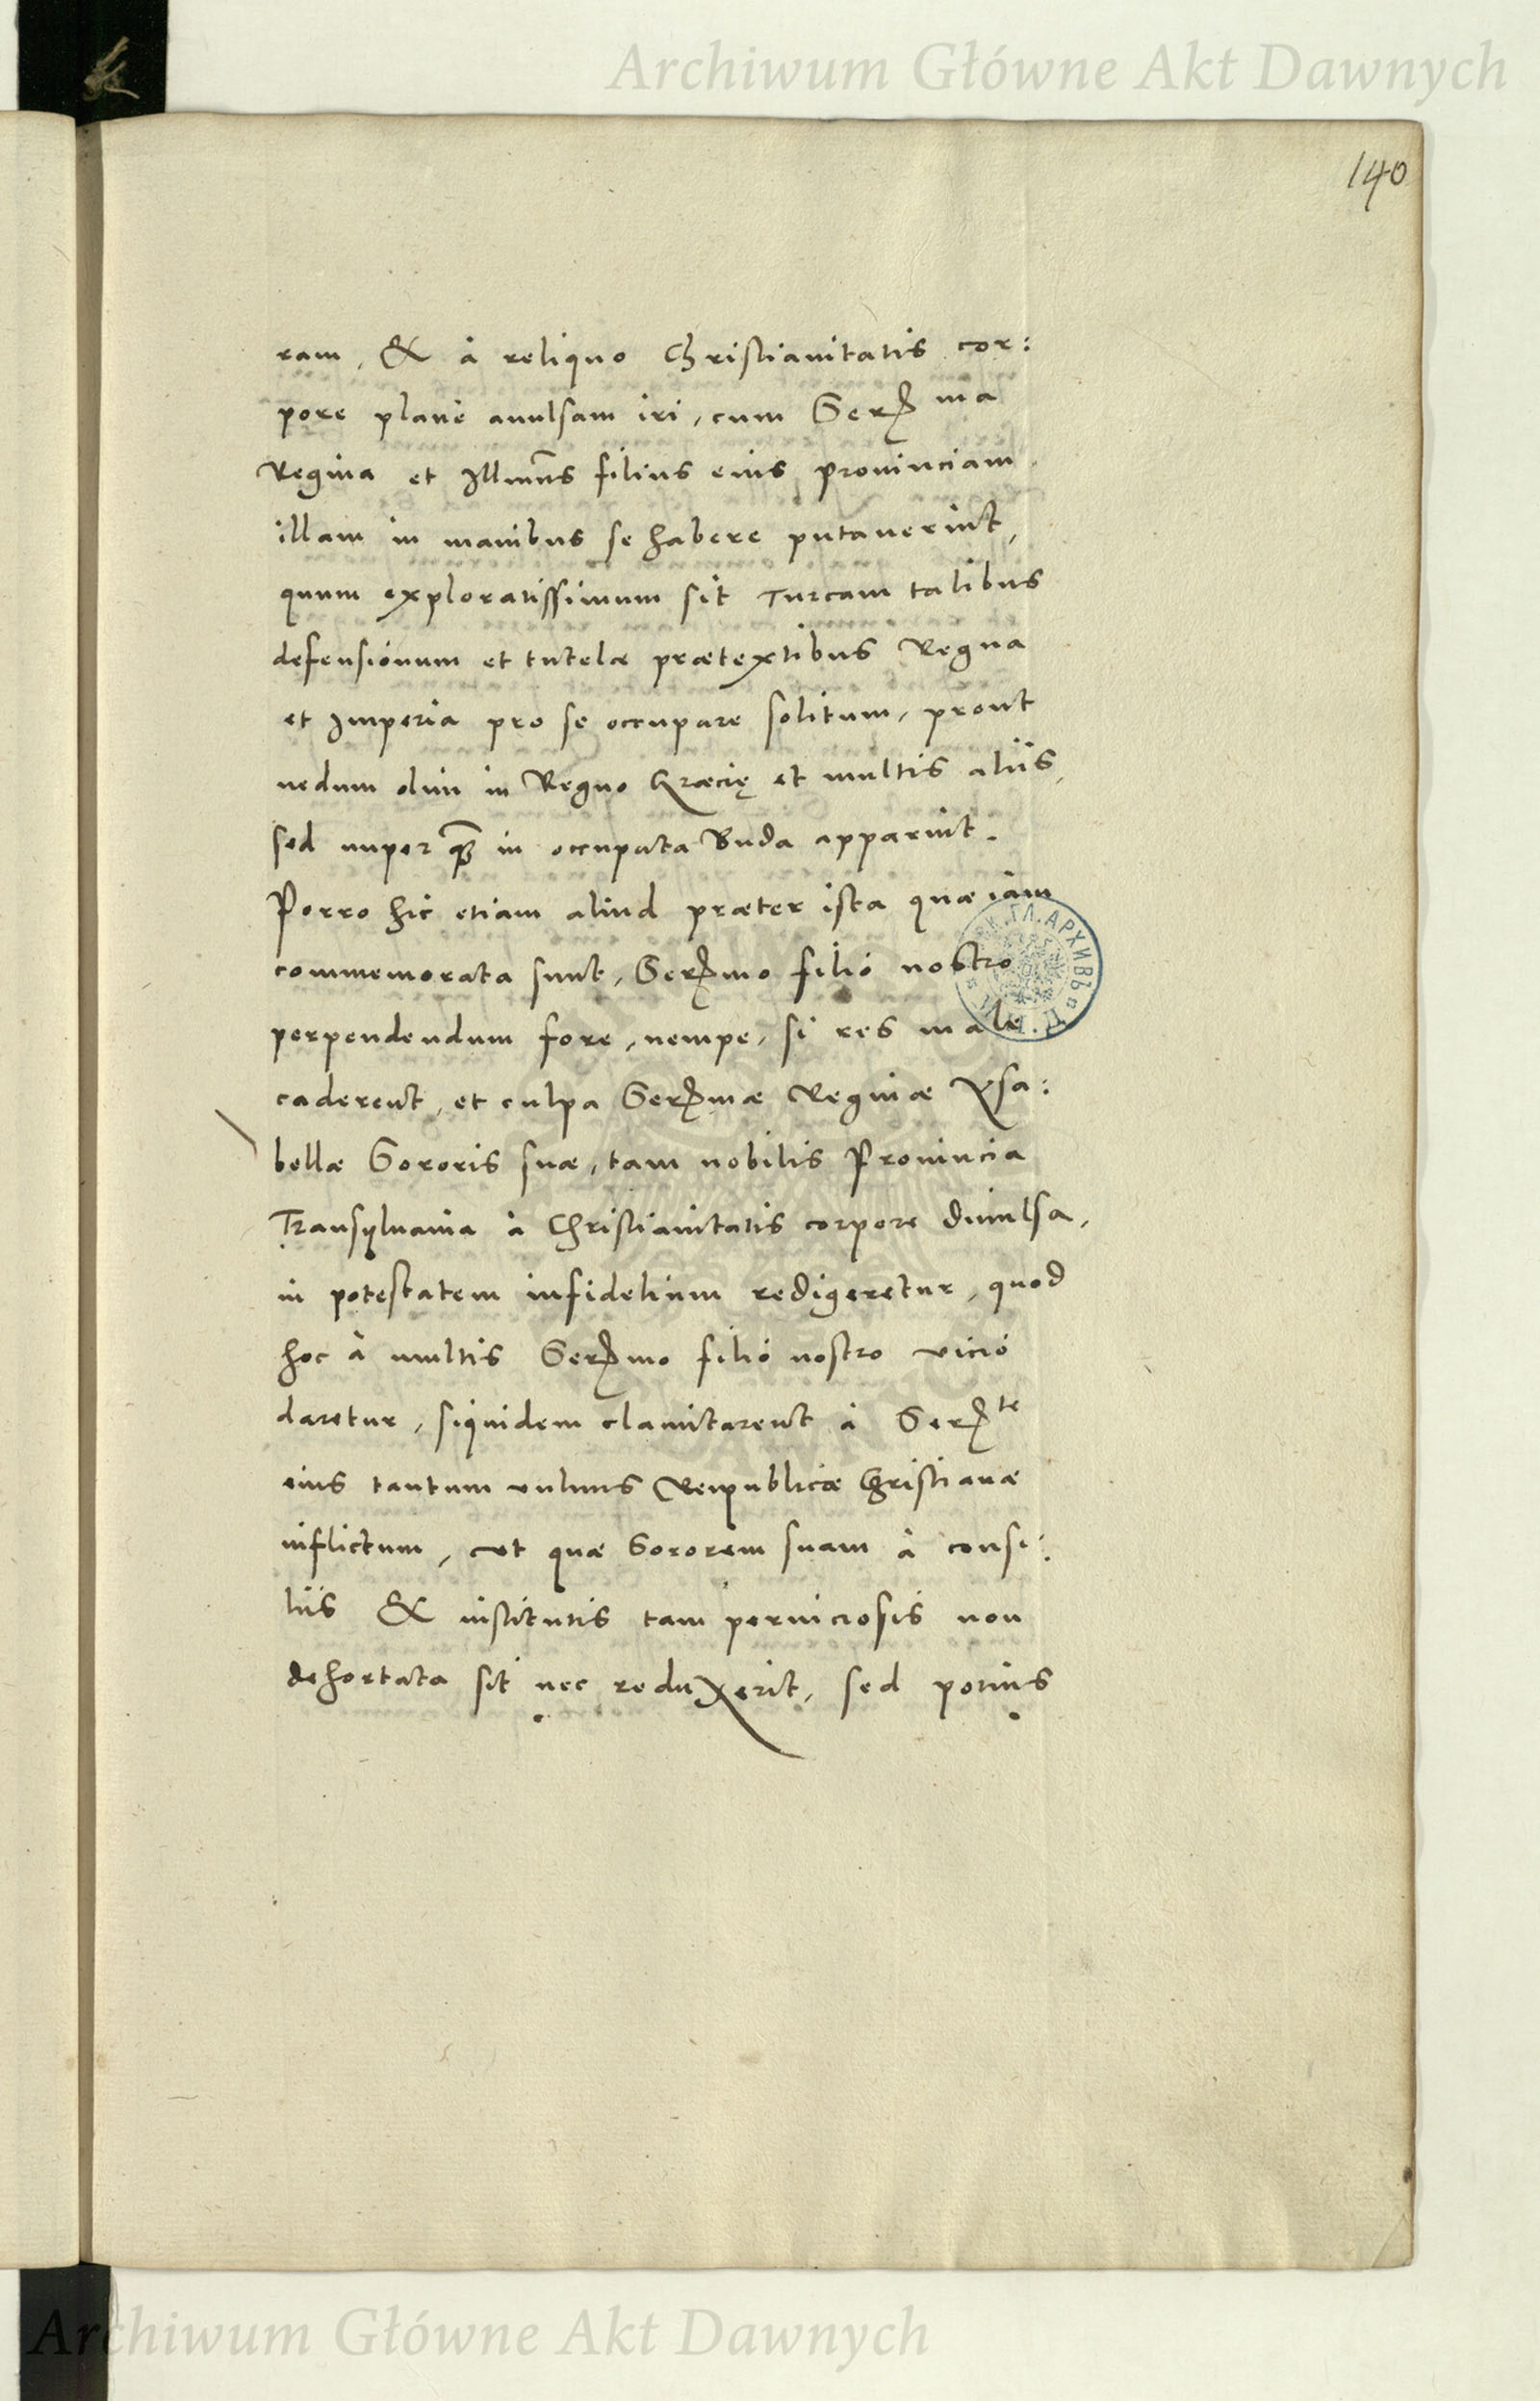 Archiwum Główne Akt Dawnych
140
ram, & à reliquo Christianitatis cor:
pore planè auulsam iri, cum Ser. ma
Regina et Illmũs filius eius prouinciam
illam in manibus se habere putauerint,
quum exploratissimum sit Turcam talibus
defensionum et tutelæ prætextibus Regna
et Imperia pro se occupare solitum, prout
nedum olim in Regno Græcię et multis aliis,
sed nuper in occupata Buda apparuit.
Porro hic etiam aliud præter ista quæ iam
commemorata sunt, Ser.mo filio nostro
perpendendum fore, nempe, si res male
caderent, et culpa Ser.mæ Reginæ Ysa:
bellæ Sororis suæ, tam nobilis Prouincia
Transyluania à Christianitatis corpore diuulsa,
in potestatem infidelium redigeretur, quod
hoc à multis Ser.mo filio nostro vicio
daretur, siquidem clamitarent à Ser.te
eius tantum vulnus Reipublicæ Christianæ
inflictum, vt quæ Sororem suam à consi:
liis & institutis tam perniciosis non
dehortata sit nec reduxerit, sed potius
Archiwum Główne Akt Dawnych